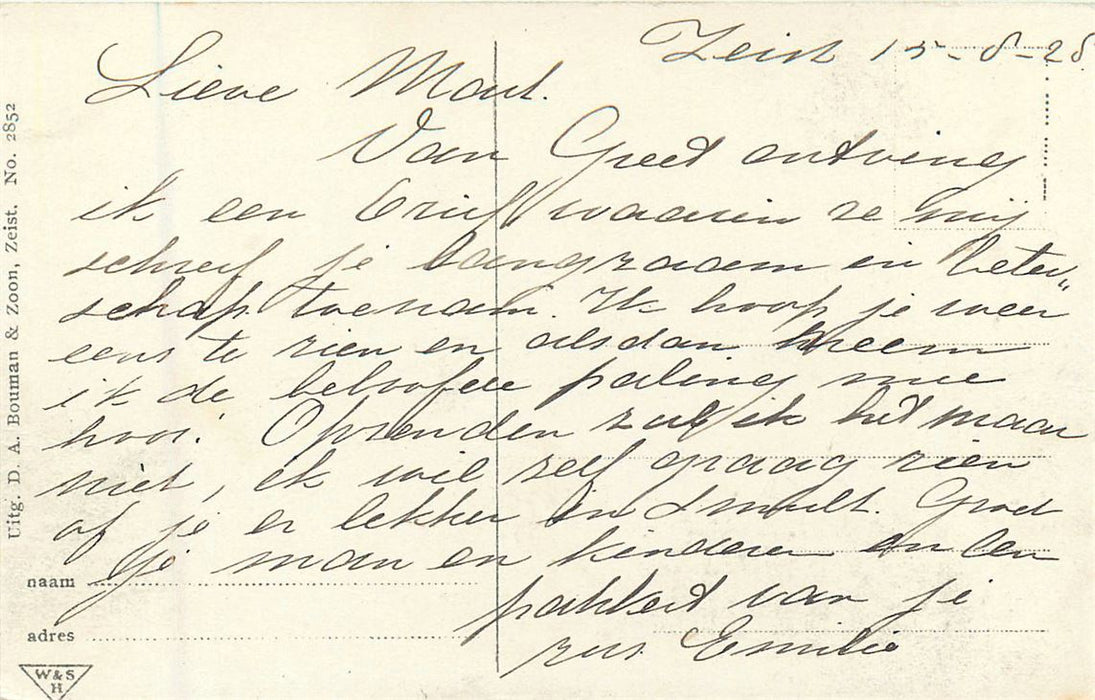 Zeist 15-8-28.
Lieve Mout.
Van Greet ontving
ik een brief waarin ze mij
schreef je langzaam in beter„
schap toenam. Ik hoop je weer
eens te zien en alsdan neem
ik de beloofde paling mee
hoor. Opzenden zul ik het maar
niet, ik wil zelf graag zien
of je er lekker in smult. Groet
je man en kinderen en een
pakkerd van je
zus Emilie
naam
adres
Uitg. D. A. Bouman & Zoon, Zeist. No. 2852
W & S
H